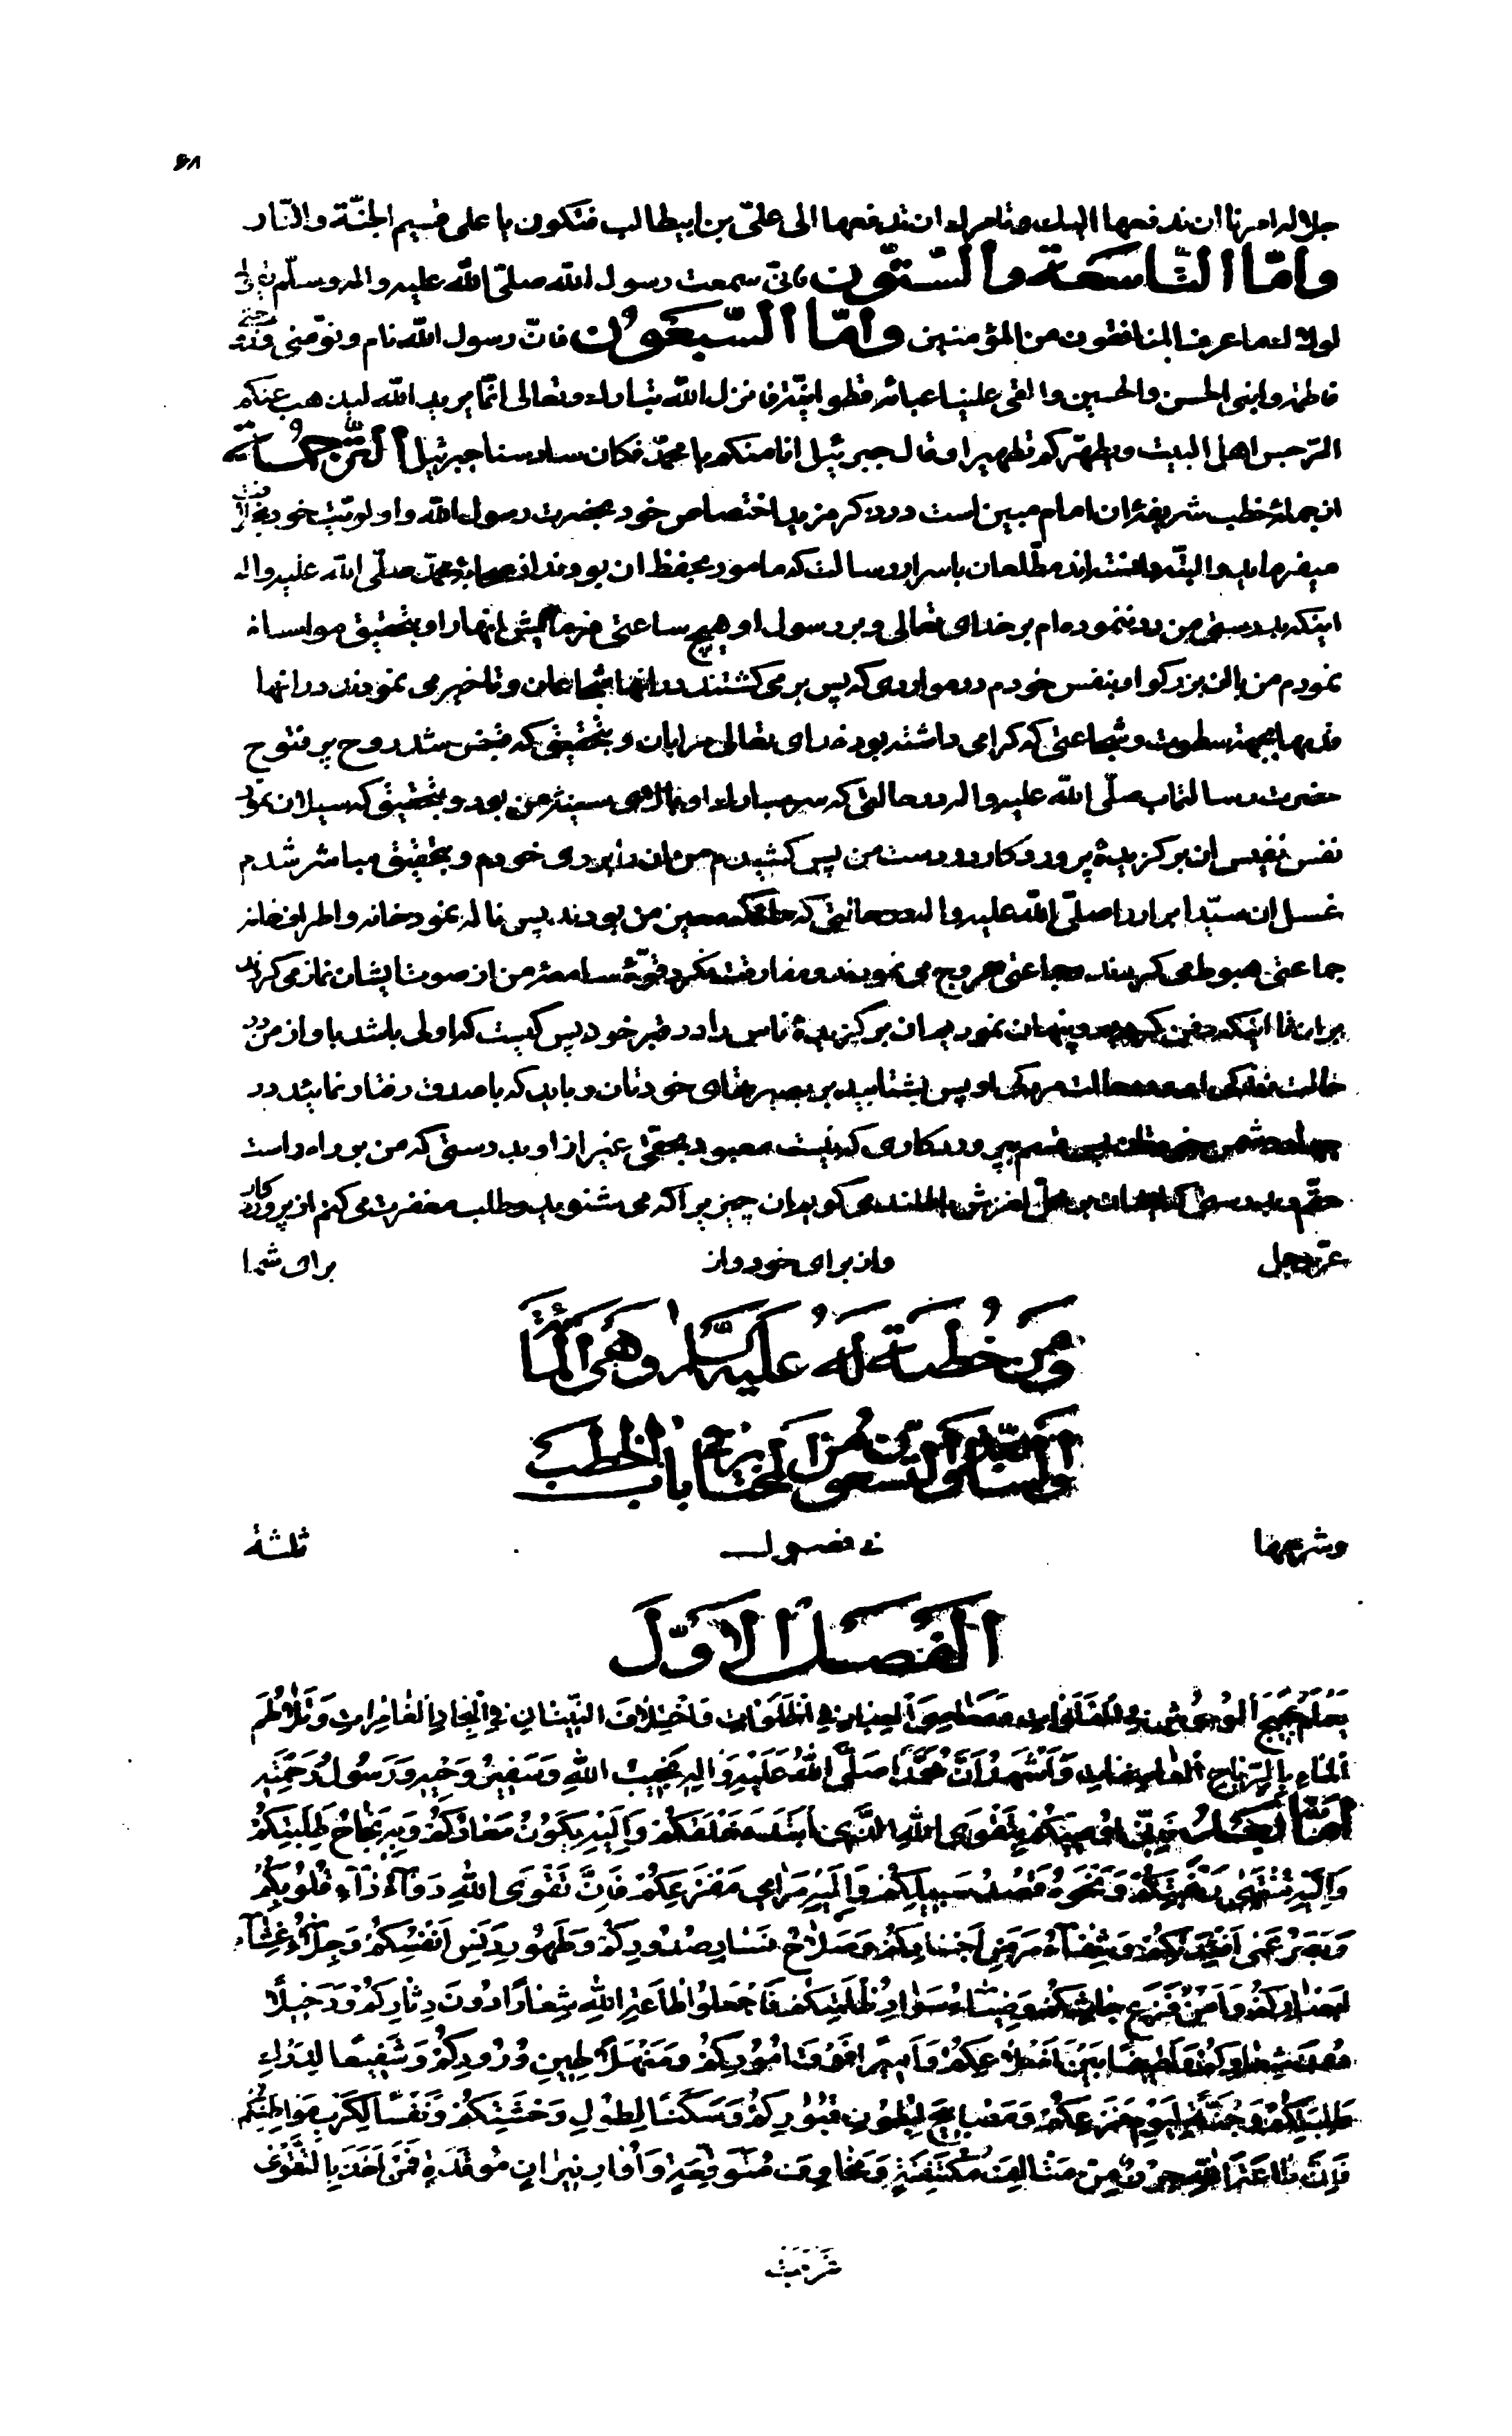 ۶۸
جلاله امرنا ان ندفعها اليك و نامرك ان تدفعها الى علىّ بن ابيطالب فتكون يا على قسيم الجنّة والنّار
وامّا التّاسعة والسّتّون فانّى سمعت رسول الله صلّى الله عليه واله وسلّم يقول لى
لولاك لما عرف المنافقون من المؤمنين وامّا السّبعون فانّ رسول الله نام ونوّمنى وزوجتى
فاطمة وابنى الحسن والحسين والقى علينا عبائة قطوانيّة فانزل الله تبارك وتعالى انّما يريد الله ليذهب عنكم
الرّجس اهل البيت ويطهّركم تطهيرا وقال جبرئيل انا منكم يا محمّد فكان سادسنا جبرئيل الترجمة
از جمله خطب شريفه ان امام مبين است در ذكر مزيد اختصاص خود بحضرت رسول الله واولويّت خود
ميفرمايد والبتّه دانسته‌اند مطّلعان باسرار رسالت كه مامور بحفظ ان بودند از صحابۀ محمّد صلّى الله عليه واله
اينكه بدرستى من رد ننموده‌ام بر خداى تعالى وبر رسول او هيچ ساعتى فرمايش انها را وبتحقيق مواساة
نمودم من با ان بزركوار بنفس خودم در مواردى كه پس بر مى كشتند در انها شجاعان وتاخير مى نمودند در انها
قدمها بجهة سطوت وشجاعتى كه كرامى داشته بود خداى تعالى مرا بان وبتحقيق كه قبض شد روح پر فتوح
حضرت رسالتماب صلّى الله عليه واله در حالتى كه سر مبارك او بالاى سينۀ من بود وبتحقيق كه سيلان نمود
نفس نفيس ان بركزيدۀ پروردكار در دست من پس كشيدم من ان را بروى خودم وبتحقيق مباشر شدم
غسل ان سيّد ابرار را صلّى الله عليه واله در حالتى كه ملائكه معين من بودند پس ناله نمود خانه واطراف خانه
جماعتى هبوط مى كردند وجماعتى عروج مى نمودند ومفارقت نكرد قوّۀ سامعۀ من از صوت ايشان نماز مى كردند
بر ان تا اينكه دفن كرديم وپنهان نموديم ان بركزيدۀ ناس را در قبر خود پس كيست كه اولى باشد باو از من در
حالت زندكى او و در حالت مردكى او پس بشتابيد بر بصيرتهاى خودتان وبايد كه با صدق رفتار نمائيد در
جهاد دشمن خودتان پس قسم بپروردكارى كه نيست معبود بحقى غير از او بدرستى كه من بر راه راست
حقّم وبدرستى كه ايشان بر محلّ لغزش باطلند مى كويم ان چيزيرا كه مى شنويد وطلب مغفرت مى كنم از پروردكار
عزّ وجل
واز براى خود واز
براى شما
ومن خطبة له عليه السلام وهى المأة
والسابعة والتسعون من المختار فى باب الخطب
وشرحها
فى فصول
ثلثة
الفصل الاوّل
يَعْلَمُ عَجيجَ الْوُحُوشِ فِي الْفَلَواتِ وَمَعاصِيَ الْعِبادِ فِي الْخَلَواتِ وَاخْتِلافَ النّينانِ فِي الْبِحارِ الْغامِراتِ وَتَلاطُمَ
الْماءِ بِالرِّياحِ الْعاصِفاتِ وَأَشْهَدُ أَنَّ مُحَمَّدًا صَلَّى اللهُ عَلَيْهِ وَالِهِ نَجيبُ اللهِ وَسَفيرُ وَحْيِهِ وَرَسُولُ رَحْمَتِهِ
أَمّا بَعْدُ فَإِنّي أُوصيكُمْ بِتَقْوَى اللهِ الَّذِي ابْتَدَءَ خَلْقَكُمْ وَإِلَيْهِ يَكُونُ مَعادُكُمْ وَبِهِ نَجاحُ طَلِبَتِكُمْ
وَإِلَيْهِ مُنْتَهى رَغْبَتِكُمْ وَنَحْوَهُ قَصْدُ سَبيلِكُمْ وَإِلَيْهِ مَرامي مَفْزَعِكُمْ فَإِنَّ تَقْوَى اللهِ دَوآءُ دآءِ قُلُوبِكُمْ
وَبَصَرُ عَمى أَفْئِدَتِكُمْ وَشِفآءُ مَرَضِ أَجْسادِكُمْ وَصَلاحُ فَسادِ صُدُورِكُمْ وَطَهُورُ دَنَسِ أَنْفُسِكُمْ وَجِلآءُ غِشآءِ
أَبْصارِكُمْ وَأَمْنُ فَزَعِ جَاشِكُمْ وَضِيآءُ سَوادِ ظُلْمَتِكُمْ فَاجْعَلُوا طاعَةَ اللهِ شِعارًا دُونَ دِثارِكُمْ وَدَخيلًا
دُونَ شِعارِكُمْ وَلَطيفًا بَيْنَ أَضْلاعِكُمْ وَأَميرًا فَوْقَ أُمُورِكُمْ وَمَنْهَلًا لِحينِ وُرُودِكُمْ وَشَفيعًا لِدَرَكِ
طَلِبَتِكُمْ وَجُنَّةً لِيَوْمِ فَزَعِكُمْ وَمَصابيحَ لِبُطُونِ قُبُورِكُمْ وَسَكَنًا لِطُولِ وَحْشَتِكُمْ وَنَفَسًا لِكَرْبِ مَواطِنِكُمْ
فَإِنَّ طاعَةَ اللهِ حِرْزٌ مِنْ مَتالِفَ مُكْتَنِفَةٍ وَمَخاوِفَ مُتَوَقَّعَةٍ وَأُوارِ نيرانٍ مُوقَدَةٍ فَمَنْ أَخَذَ بِالتَّقْوى
عَزَبَتْ